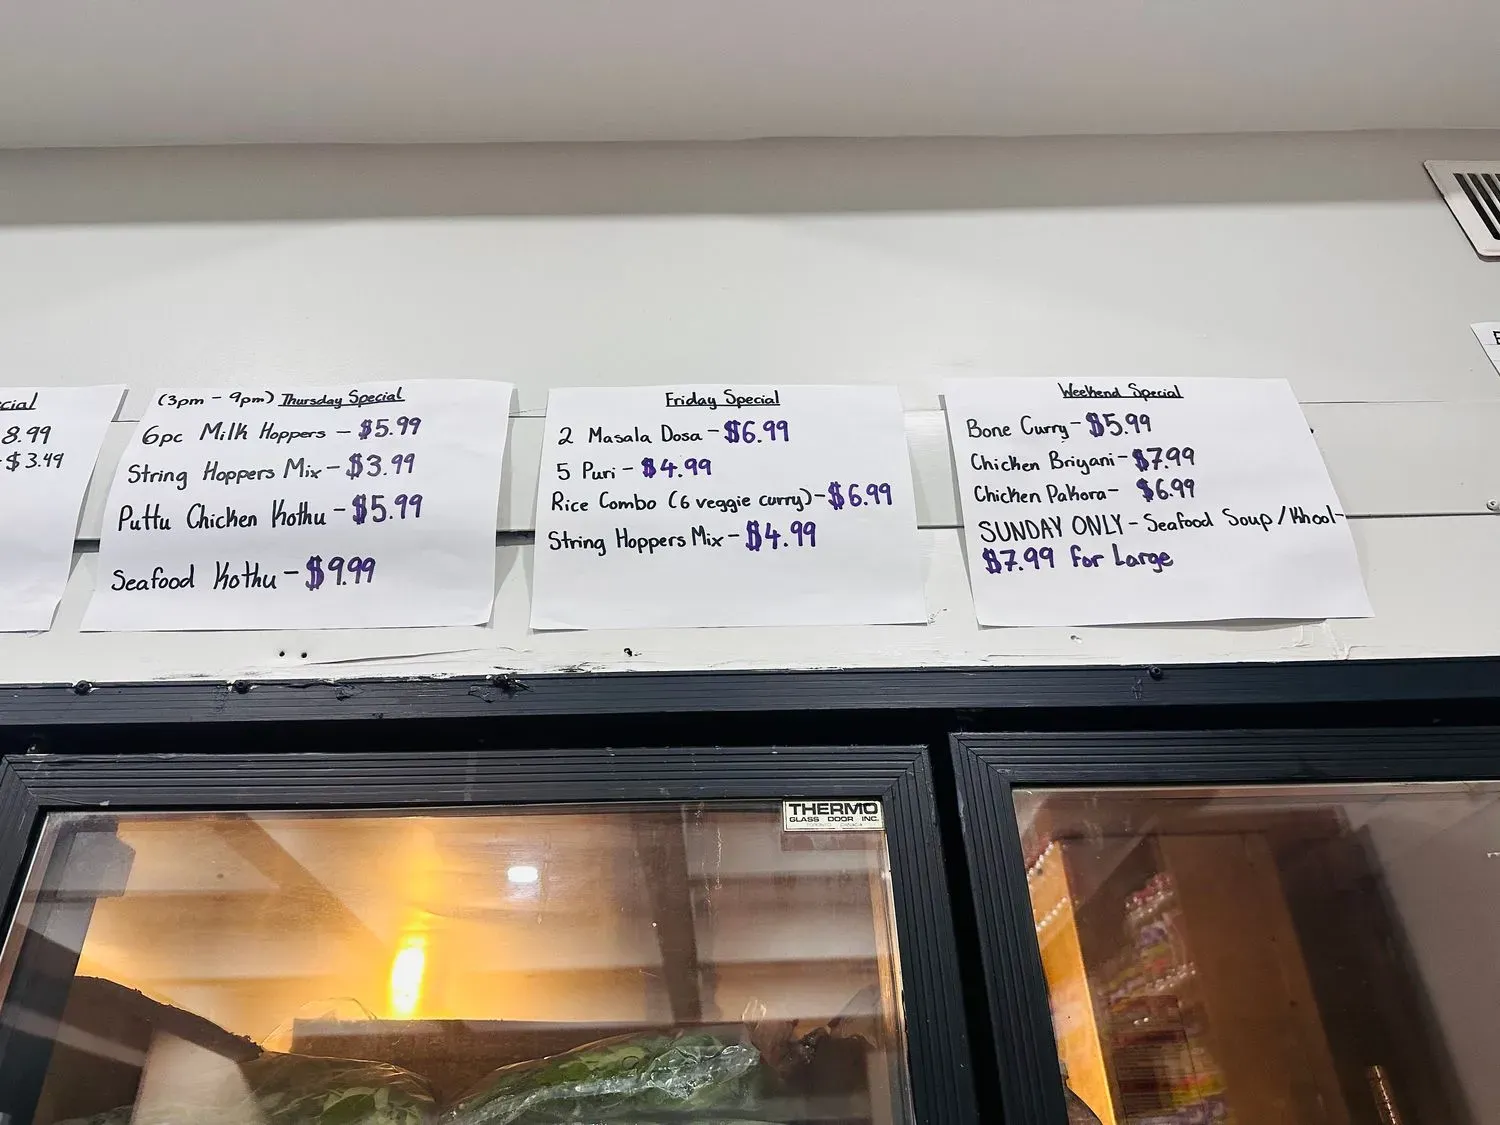 cial
8.99
- $3.49
(3pm - 9pm) Thursday Special
6pc Milk Hoppers - $5.99
String Hoppers Mix - $3.99
Puttu Chicken Kothu - $5.99
Seafood Kothu - $9.99
Friday Special
2 Masala Dosa - $6.99
5 Puri - $4.99
Rice Combo (6 veggie curry) - $6.99
String Hoppers Mix - $4.99
Weekend Special
Bone Curry - $5.99
Chicken Briyani - $7.99
Chicken Pakora - $6.99
SUNDAY ONLY - Seafood Soup / Khool -
$7.99 for Large
THERMO
GLASS DOOR INC.